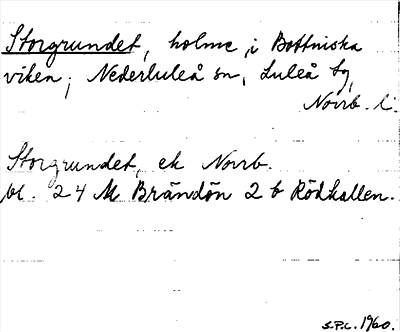 Storgrundet, holme i Bottniska
viken; Nederluleå sn, Luleå tg,
Norrb. l.
Storgrundet, ek Norrb.
bl. 24 M Brändön 2 b Rödkallen.
S.P.L. 1960.